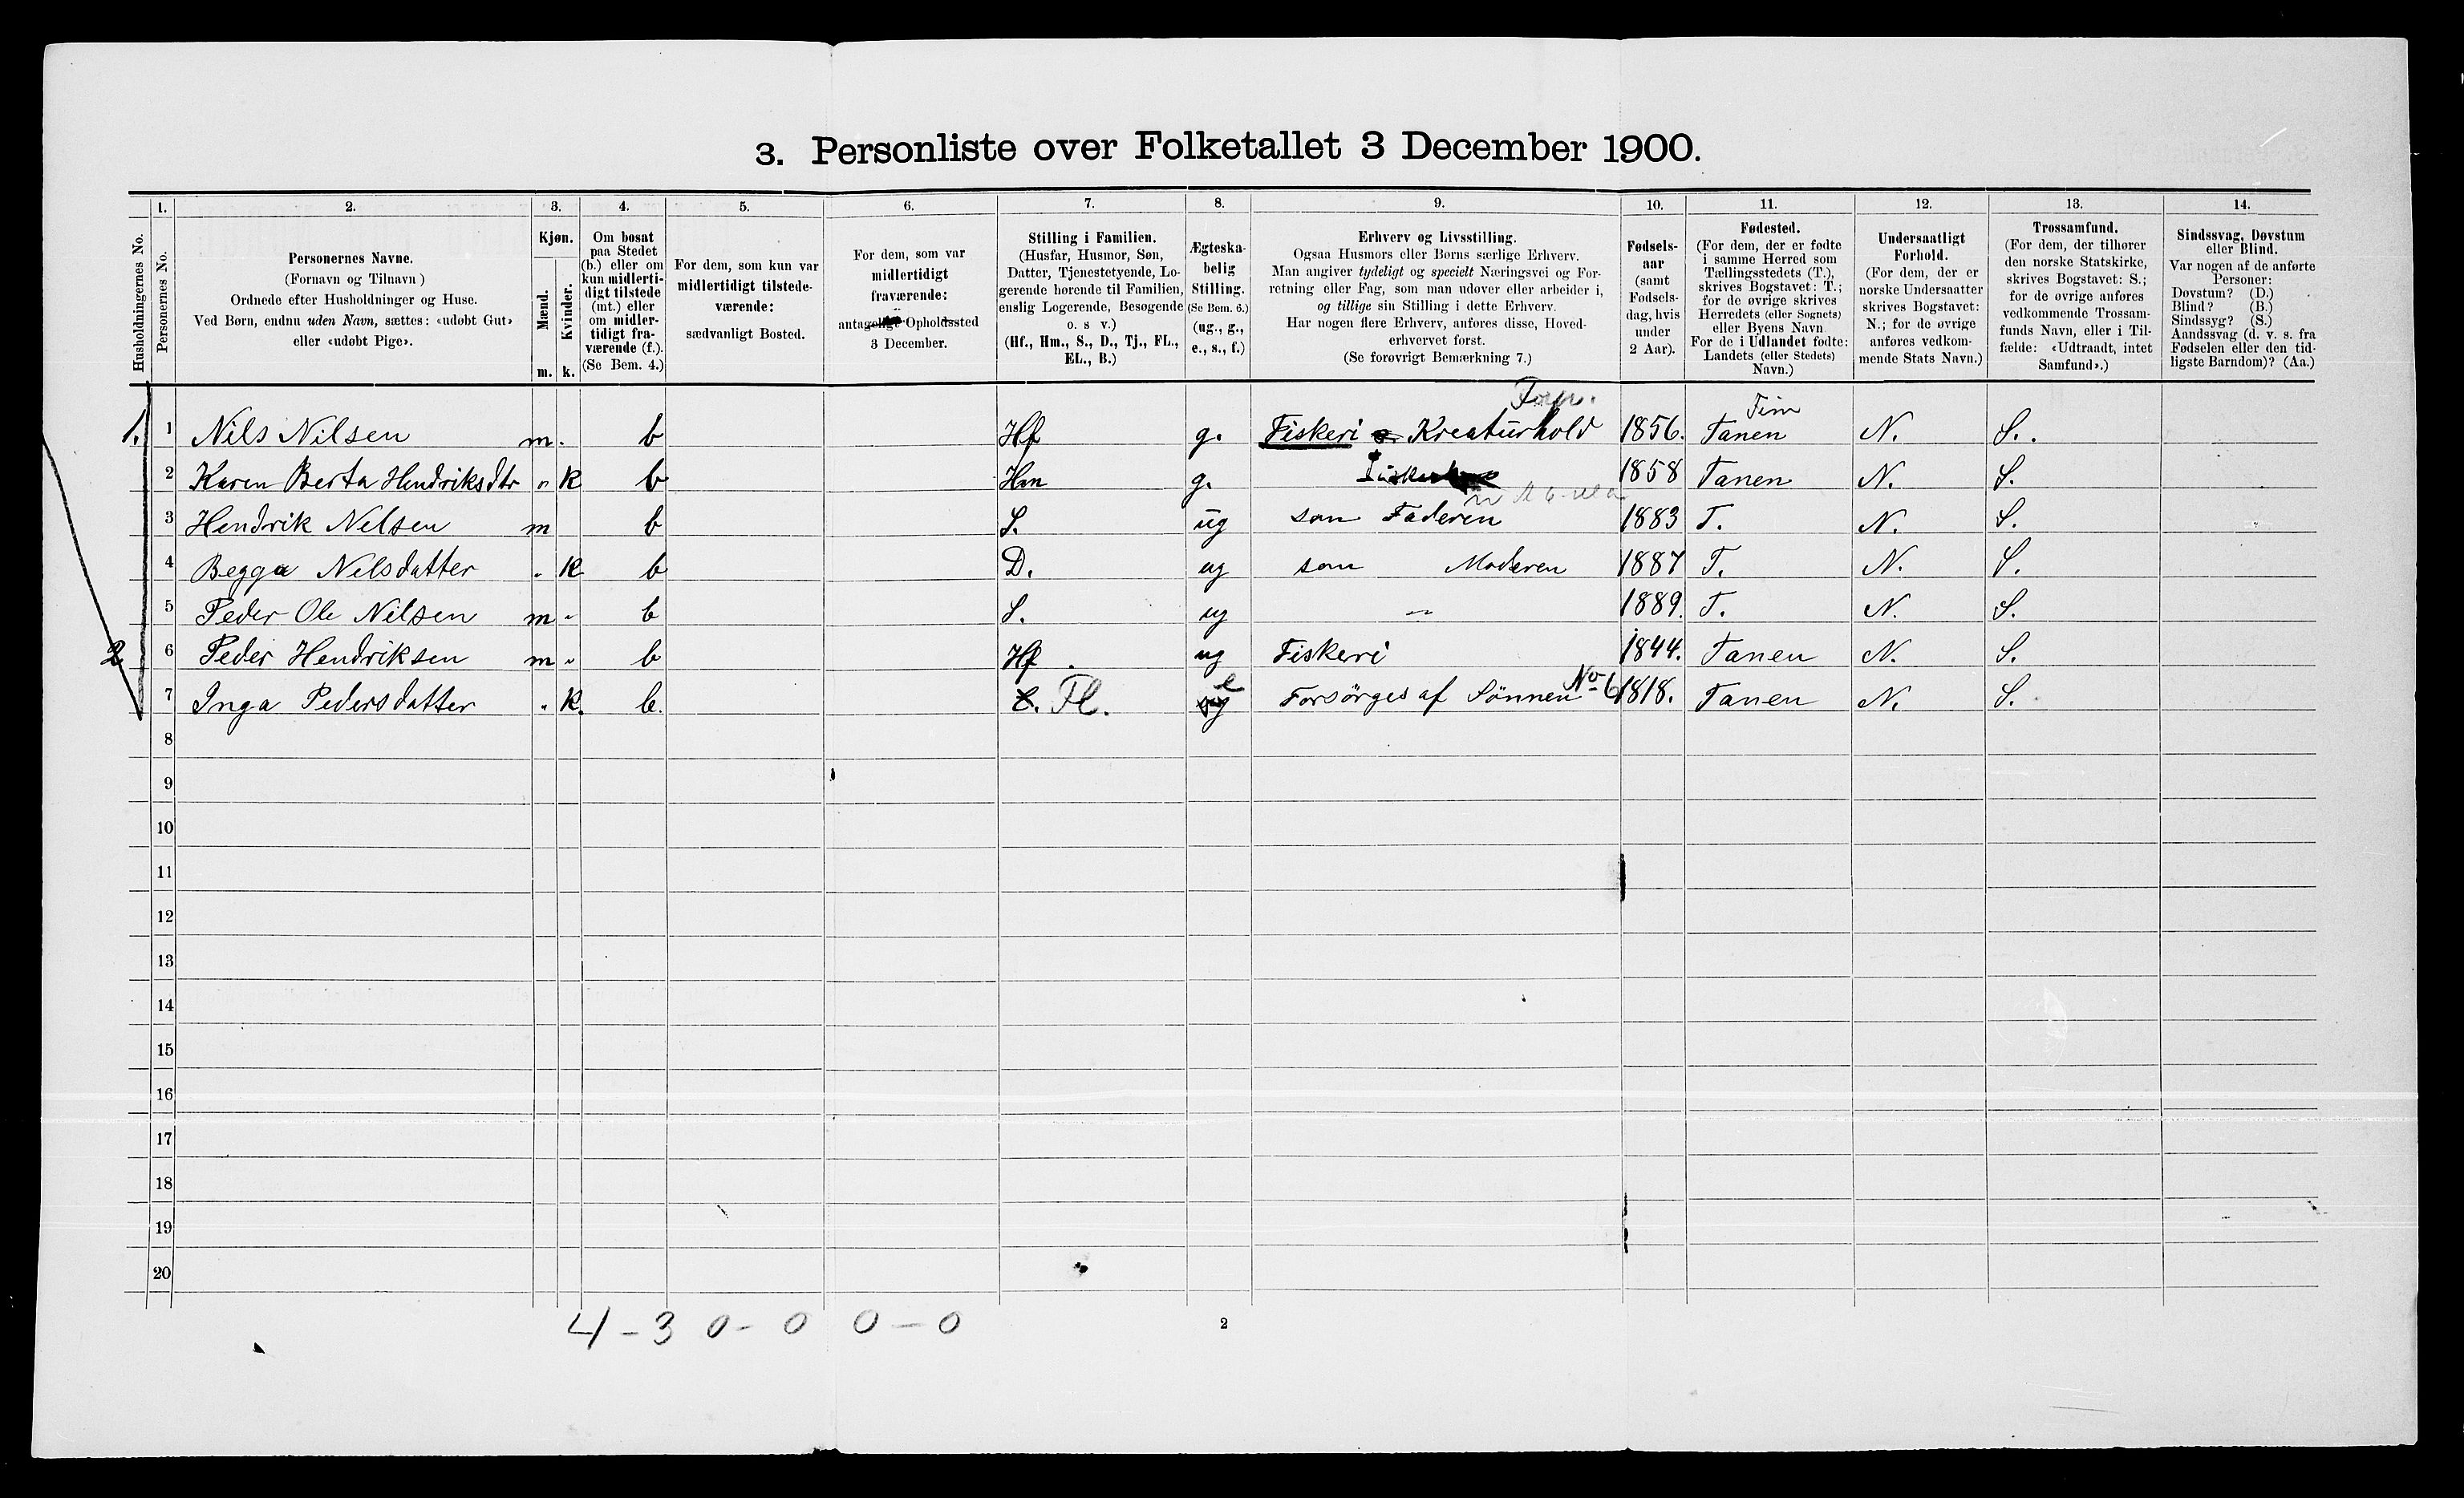 3. Personliste over Folketallet 3 December 1900.
1. 2. 3. 4. 5. 6. 7. 8. 9. 10. 11. 12. 13. 14.
Husholdningernes No.
Personernes No.
Personernes Navne.
(Fornavn og Tilnavn)
Ordnede efter Husholdninger og Huse.
Ved Børn, endnu uden Navn, sættes: «udøbt Gut»
eller «udøbt Pige».
Kjøn.
Mænd.
Kvinder.
m. k.
Om bosat
paa Stedet
(b.) eller om
kun midlerti-
digt tilstede
(mt.) eller
om midler-
tidigt fra-
værende (f.).
(Se Bem. 4.)
For dem, som kun var
midlertidigt tilstede-
værende:
sædvanligt Bosted.
For dem, som var
midlertidigt
fraværende:
antageligt Opholdssted
3 December.
Stilling i Familien.
(Husfar, Husmor, Søn,
Datter, Tjenestetyende, Lo-
gerende hørende til Familien,
enslig Logerende, Besøgende
o. s v.)
(Hf., Hm., S., D., Tj., FL.,
EL., B.)
Ægteska-
belig
Stilling.
(Se Bem. 6.)
(ug., g.,
e., s., f.)
Erhverv og Livsstilling.
Ogsaa Husmors eller Børns særlige Erhverv.
Man angiver tydeligt og specielt Næringsvei og For-
retning eller Fag, som man udøver eller arbeider i,
og tillige sin Stilling i dette Erhverv.
Har nogen flere Erhverv, anføres disse, Hoved-
erhvervet først.
(Se forøvrigt Bemærkning 7.)
Fødsels-
aar
(samt
Fødsels-
dag, hvis
under
2 Aar).
Fødested.
(For dem, der er fødte
i samme Herred som
Tællingsstedets (T.),
skrives Bogstavet: T.;
for de øvrige skrives
Herredets (eller Sognets)
eller Byens Navn
For de i Udlandet fødte:
Landets (eller Stedets)
Navn.)
Undersaatligt
Forhold.
(For dem, der er
norske Undersaatter
skrives Bogstavet:
N.; for de øvrige
anføres vedkom-
mende Stats Navn.)
Trossamfund.
(For dem, der tilhører
den norske Statskirke,
skrives Bogstavet: S.;
for de øvrige anføres
vedkommende Trossam-
funds Navn, eller i Til-
fælde: «Udtraadt, intet
Samfund».)
Sindssvag, Døvstum
eller Blind.
Var nogen af de anførte
Personer:
Døvstum? (D.)
Blind? (B.)
Sindssyg? (S.)
Aandssvag (d. v. s. fra
Fødselen eller den tid-
ligste Barndom)? (Aa.)
1. 1 Nils Nilsen m. b Hf g. Fiskeri Kreaturhold 1856. Tanen N. S.
2 Karen Berta Hendriksdtr " k b Hm g. 1858 Tanen N. S.
3 Hendrik Nelsen m b S. ug som Faderen 1883 T. N. S.
4 Begga Nilsdatter " k b D. ug som Moderen 1887 T. N. S.
5 Peder Ole Nilsen m " b S. ug — " — 1889. T. N. S.
2 6 Peder Hendriksen m " b Hf. ug Fiskeri 1844. Tanen N. S.
7 Inga Pedersdatter " k. b. Fl. e Forsørges af Sönnen No 6 1818. Tanen N. S.
8
9
10
11
12
13
14
15
16
17
18
19
20
4 - 3 0 - 0 0 - 0
2